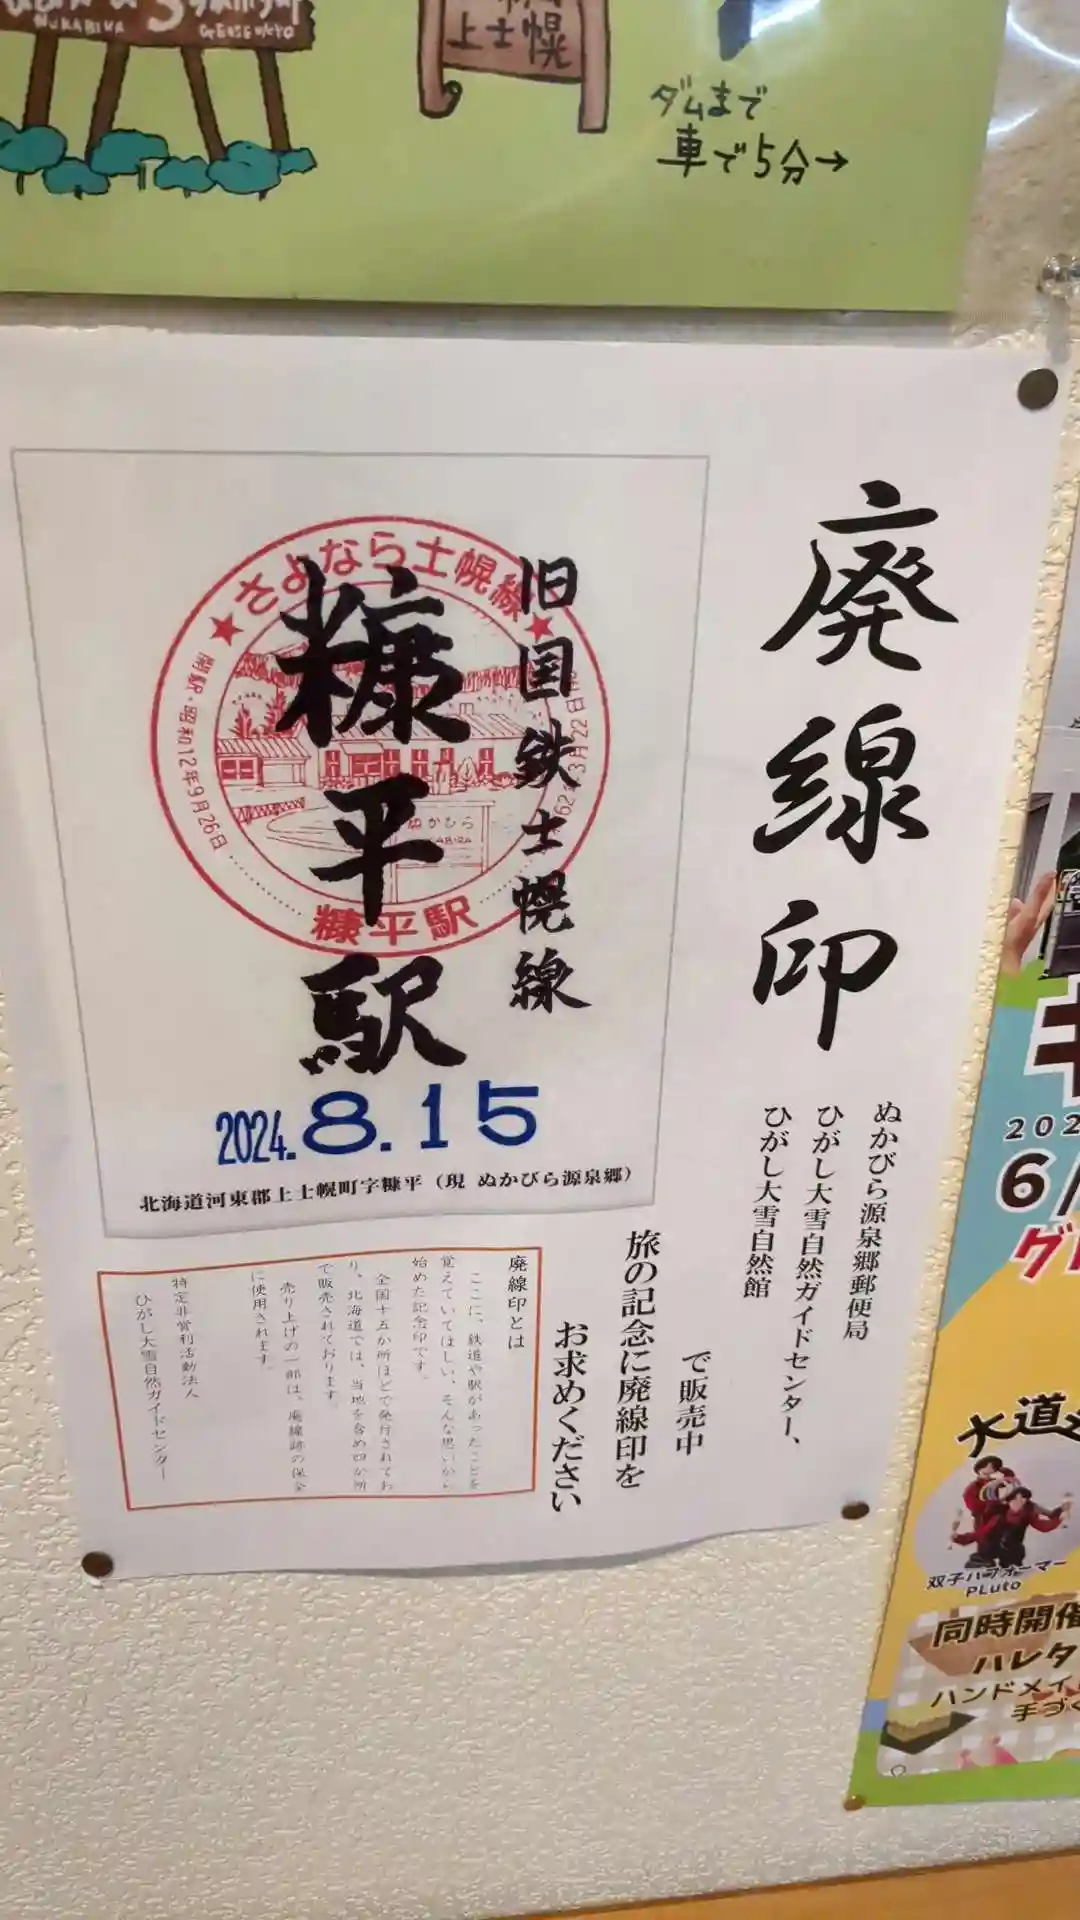 NUKABIRA
GENSENKYO
上士幌
ダムまで
車で5分→
廃線印
ぬかびら源泉郷郵便局
ひがし大雪自然ガイドセンター、
ひがし大雪自然館
で販売中
旅の記念に廃線印を
お求めください
旧国鉄士幌線
糠平駅
★さよなら士幌線★
開駅・昭和12年9月26日
ぬかびら
糠平駅
2024.8.15
北海道河東郡上士幌町字糠平（現 ぬかびら源泉郷）
廃線印とは
ここに、鉄道や駅があったことを
覚えていてほしい、そんな思いから
始めた記念印です。
全国十五か所ほどで発行されてお
り、北海道では、当地を含め四か所
で販売されております。
売り上げの一部は、廃線跡の保全
に使用されます。
特定非営利活動法人
ひがし大雪自然ガイドセンター
202
6/
大道
双子パフォーマー
PLuto
同時開催
ハレタ
ハンドメイ
手づく